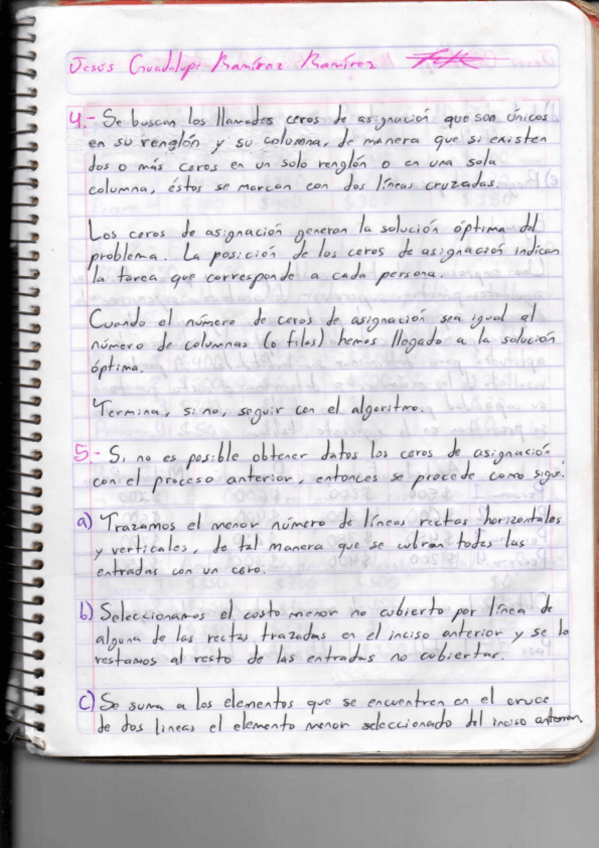 Jesús Guadalupe Ramírez Ramírez
4.- Se buscan los llamados ceros de asignación que son únicos
en su renglón y su columna, de manera que si existen
dos o más ceros en un solo renglón o en una sola
columna, éstos se marcan con dos líneas cruzadas.
Los ceros de asignación generan la solución óptima del
problema. La posición de los ceros de asignación indican
la tarea que corresponde a cada persona.
Cuando el número de ceros de asignación sea igual al
número de columnas (o filas) hemos llegado a la solución
óptima.
Termina, si no, seguir con el algoritmo.
5.- Si no es posible obtener datos los ceros de asignación
con el proceso anterior, entonces se procede como sigue:
a) Trazamos el menor número de líneas rectas horizontales
y verticales, de tal manera que se cubran todas las
entradas con un cero.
b) Seleccionamos el costo menor no cubierto por línea de
alguna de las rectas trazadas en el inciso anterior y se lo
restamos al resto de las entradas no cubiertas.
c) Se suma a los elementos que se encuentren en el cruce
de dos lineas el elemento menor seleccionado del inciso anterior.